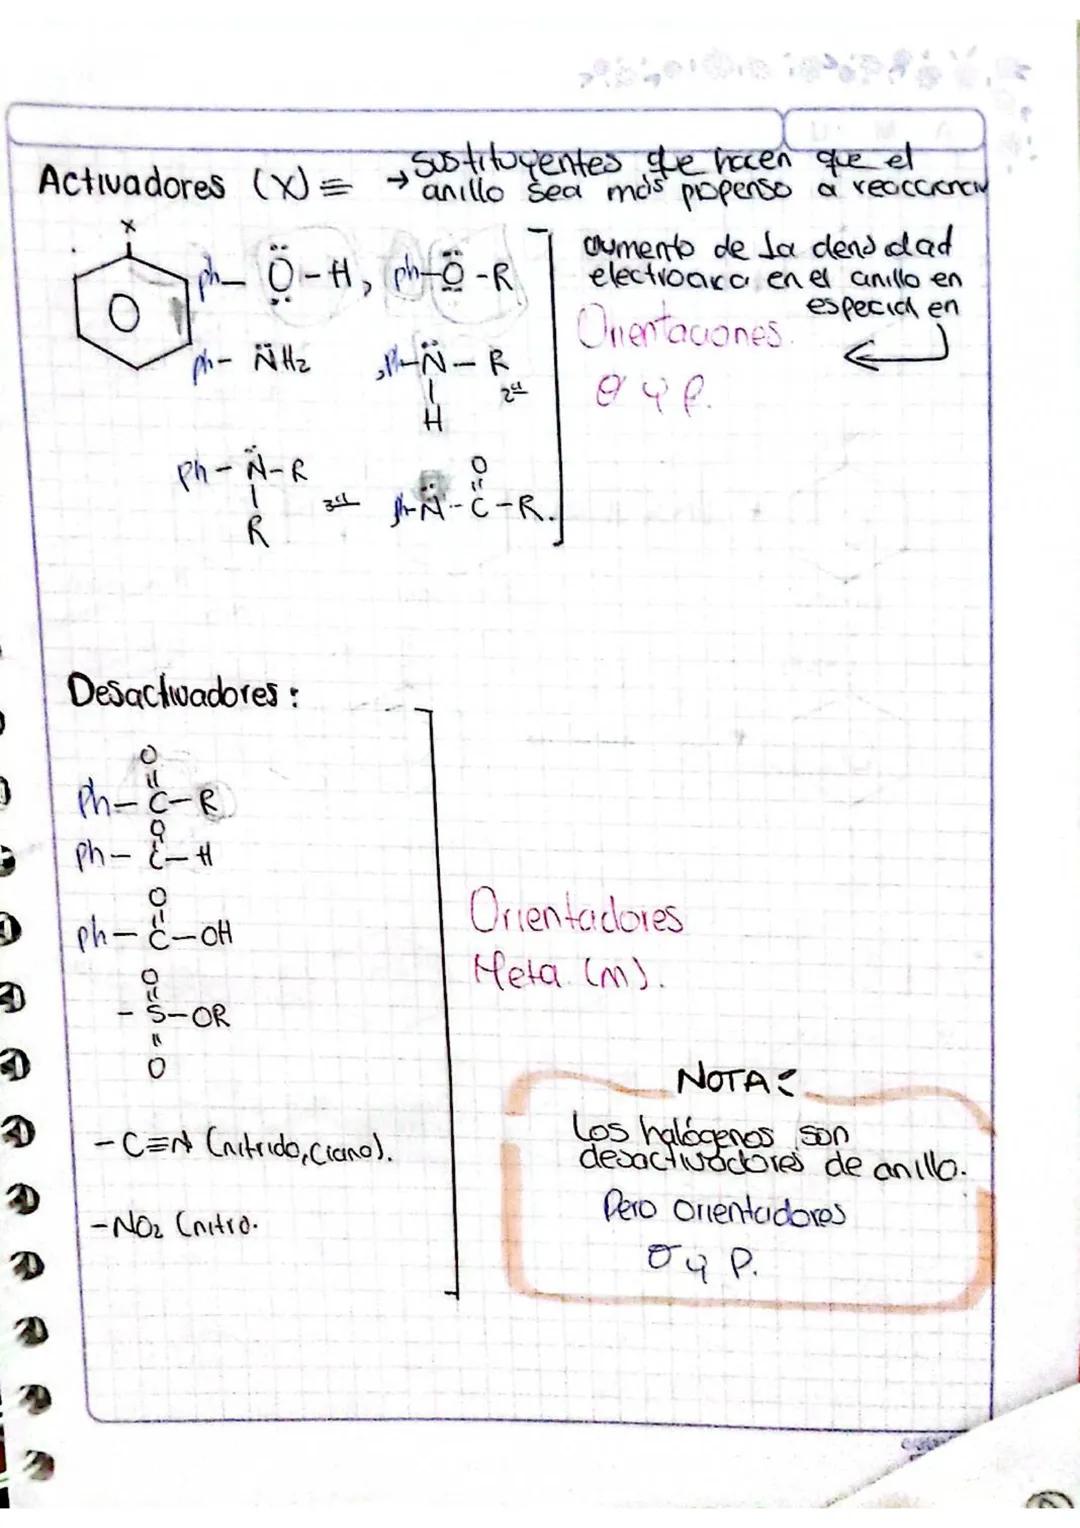 Activadores (X) ≡ → sustituyentes que hacen que el
anillo sea más propenso a reaccionar
X
ph – Ö – H, ph – Ö – R
ph – N̈H2 , ph – N̈ – R
H
2ª
ph – N̈ – R
R
3ª
O
ph – N̈ – C – R.
aumento de la densidad
electronica en el anillo en
especial en
Orientaciones.
O y P.
Desactivadores:
O
ph – C – R
O
ph – C – H
O
ph – C – OH
O
– S – OR
O
– C≡N (nitrido, ciano).
– NO2 (nitro.
Orientadores
Meta (m).
NOTA:
Los halógenos son
desactivadores de anillo.
Pero orientadores
O y P.